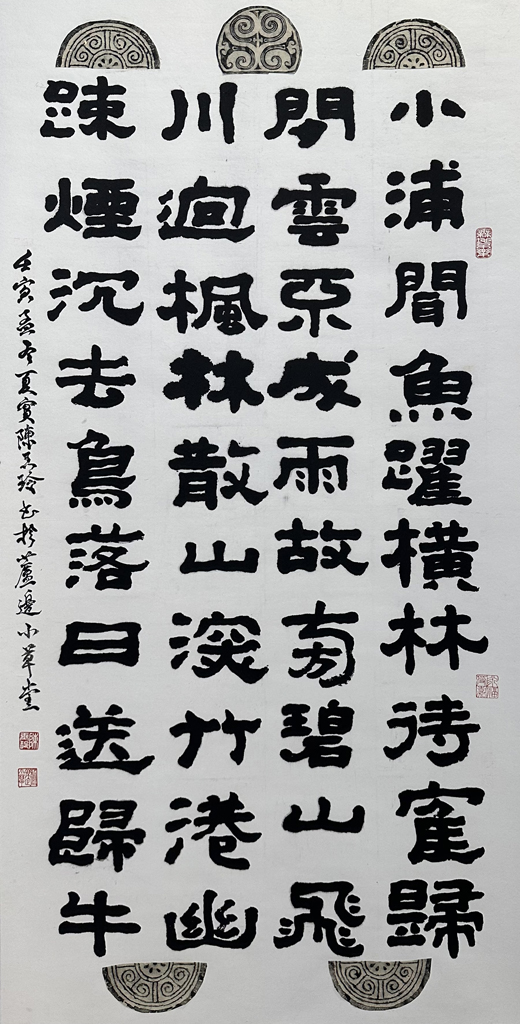 小浦聞魚躍橫林待寉歸
閑雲不成雨故旁碧山飛
川迥楓林散山深竹港幽
踈煙沉去鳥落日送歸牛
壬寅孟冬夏陳玲書於蘆邊小草堂